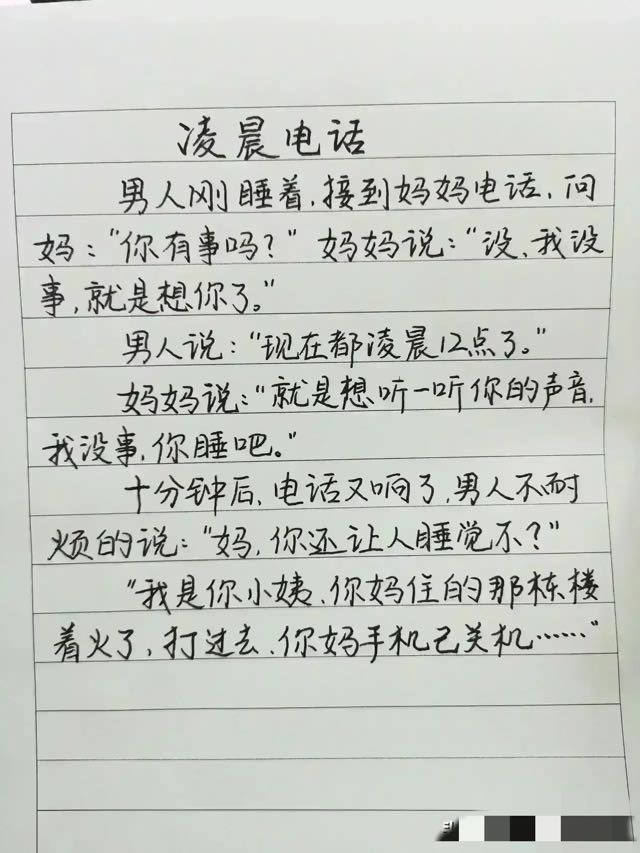 凌晨电话
男人刚睡着,接到妈妈电话,问
妈:"你有事吗?"妈妈说:"没、我没
事,就是想你了。"
男人说:"现在都凌晨12点了。"
妈妈说:"就是想听一听你的声音,
我没事,你睡吧。"
十分钟后、电话又响了,男人不耐
烦的说:"妈,你还让人睡觉不?"
"我是你小姨、你妈住的那栋楼
着火了,打过去、你妈手机已关机……"